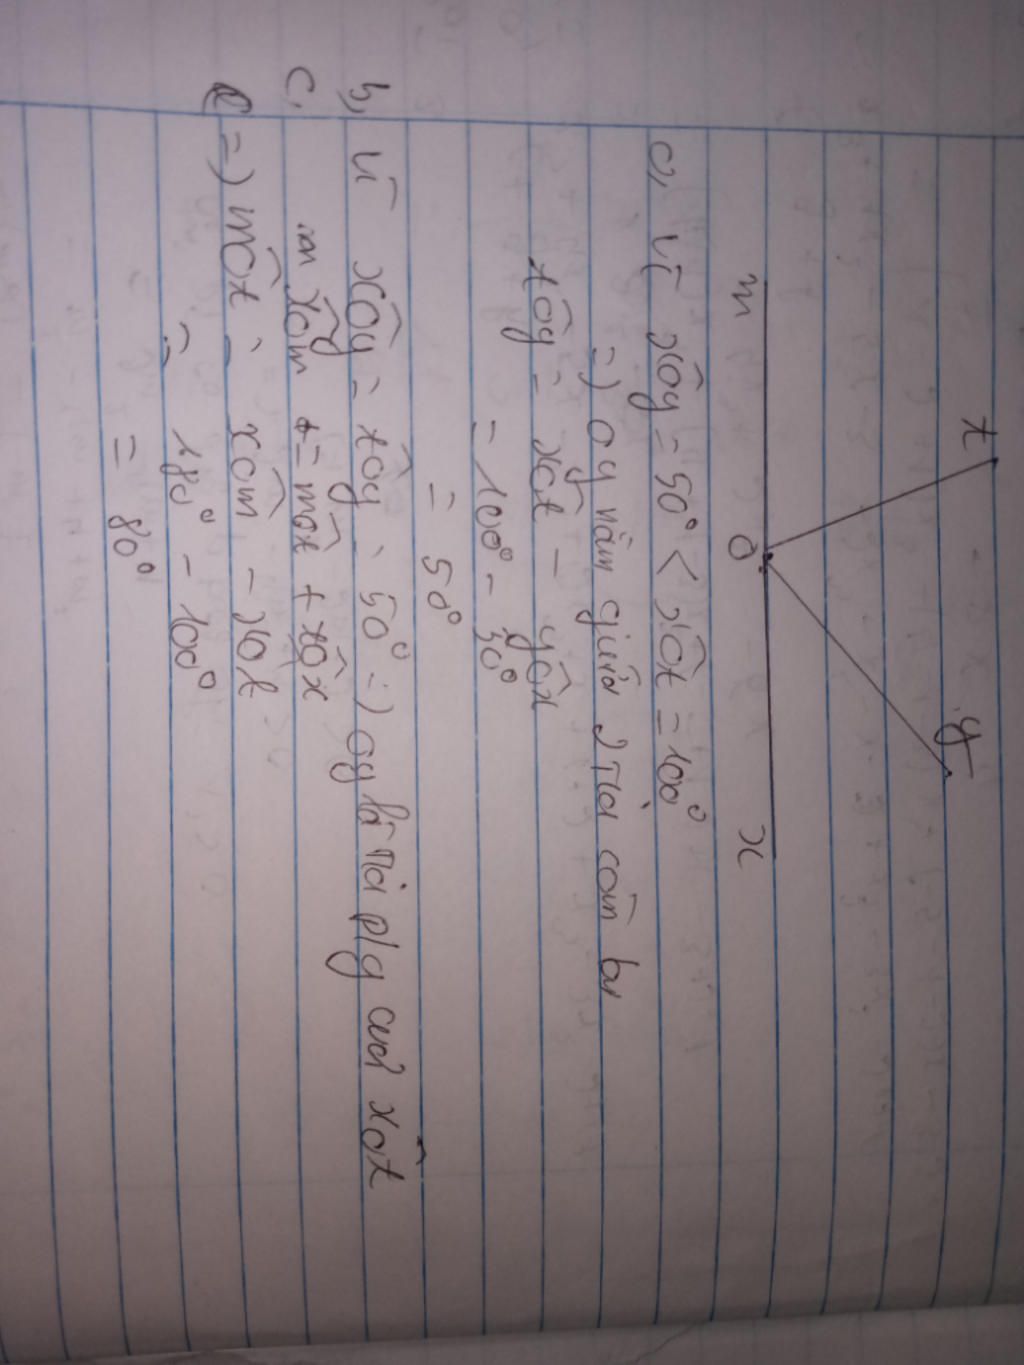 t
y
m
O
x
a, Vì xÔy = 50° < xÔt = 100°
=) Oy nằm giữa 2 tia còn lại
tÔy = xÔt - yÔx
= 100° - 50°
= 50°
b, Vì xÔy = tÔy = 50° =) Oy là tia p/g của xÔt
c, xÔm = mÔt + tÔx
=) mÔt = xÔm - xÔt
= 180° - 100°
= 80°